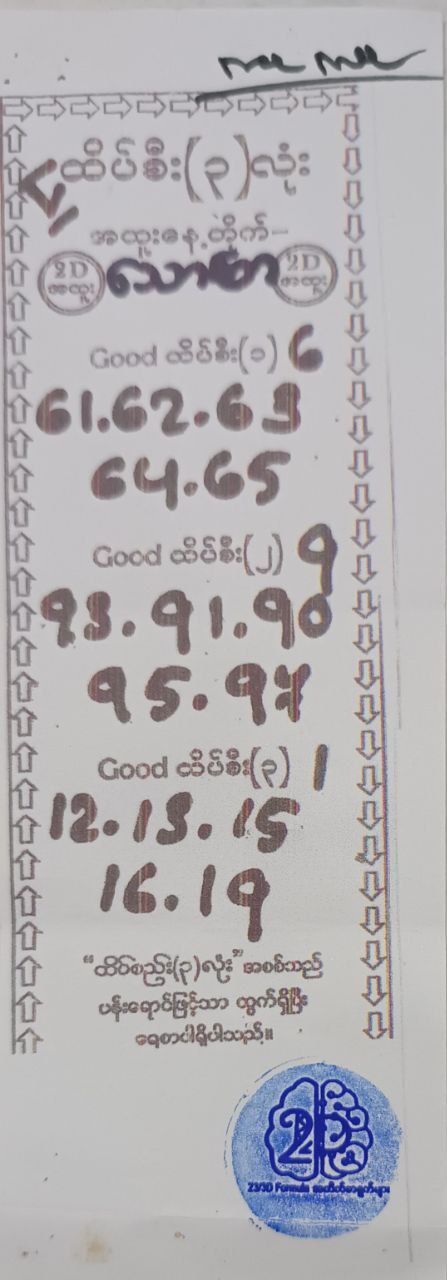 ထိပ်စီး(၃)လုံး
အထူးနေ့တိုက်-
2D အထူး သောကြာ 2D အထူး
Good ထိပ်စီး(၁) 6
61.62.63
64.65
Good ထိပ်စီး(၂) 9
93.91.90
95.97
Good ထိပ်စီး(၃) 1
12.13.15
16.19
"ထိပ်စည်း(၃)လုံး" အစစ်သည်
ပန်းရောင်ဖြင့်သာ ထွက်ရှိပြီး
ရေစာပါရှိပါသည်။
2D
2D/3D Formula